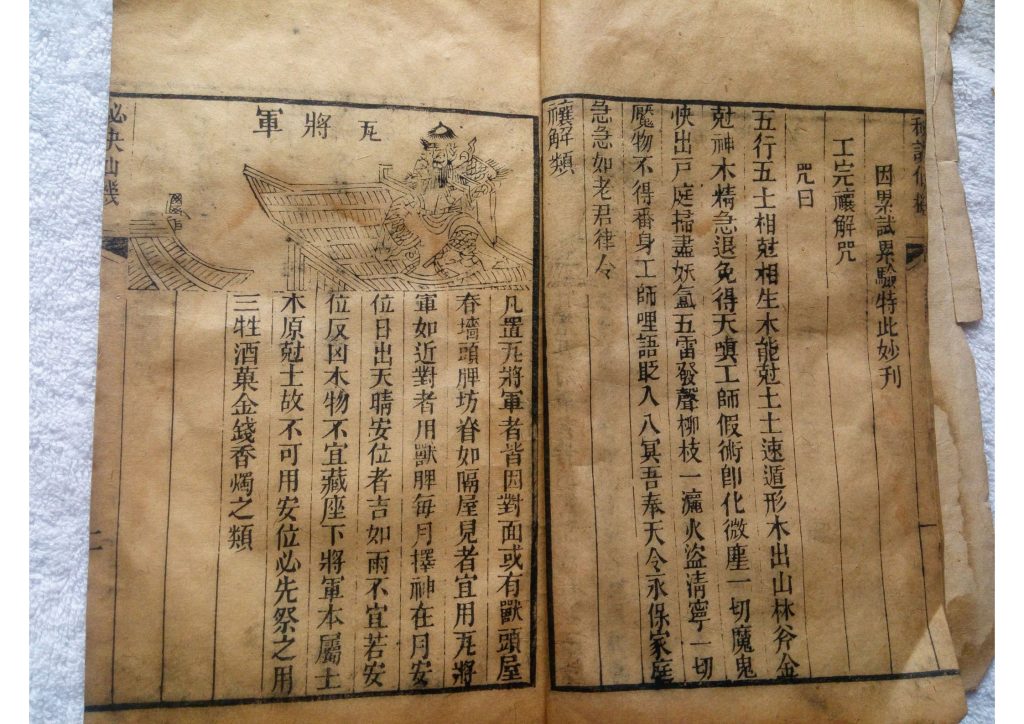 秘訣仙機
因累試累驗特此妙刊
工完禳解咒
咒曰
五行五土相尅相生木能尅土土速遁形木出山林斧金
尅神木精急退免得天嗔工師假術卽化微塵一切魔鬼
快出戶庭掃盡妖氣五雷發聲柳枝一灑火盗清寧一切
魘物不得番身工師哩語貶入八冥吾奉天令永保家庭
急急如老君律令
禳解類
瓦將軍
凡置瓦將軍者皆因對面或有獸頭屋
脊墻頭牌坊脊如隔屋見者宜用瓦將
軍如近對者用獸牌每月擇神在月安
位日出天晴安位者吉如雨不宜若安
位反凶木物不宜藏座下將軍本屬土
木原尅土故不可用安位必先祭之用
三牲酒菓金錢香燭之類
二